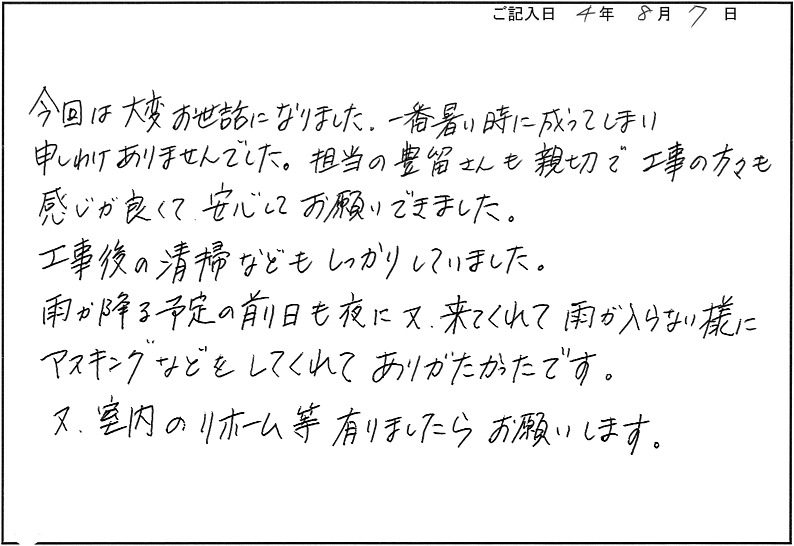 ご記入日 4年 8月 7日
今回は大変お世話になりました、一番暑い時に成ってしまい
申しわけありませんでした。担当の豊留さんも親切で工事の方々も
感じが良くて、安心してお願いできました。
工事後の清掃などもしっかりしていました。
雨が降る予定の前日も夜に又、来てくれて雨が入らない様に
マスキングなどをしてくれてありがたかったです。
又、室内のリホーム等有りましたらお願いします。